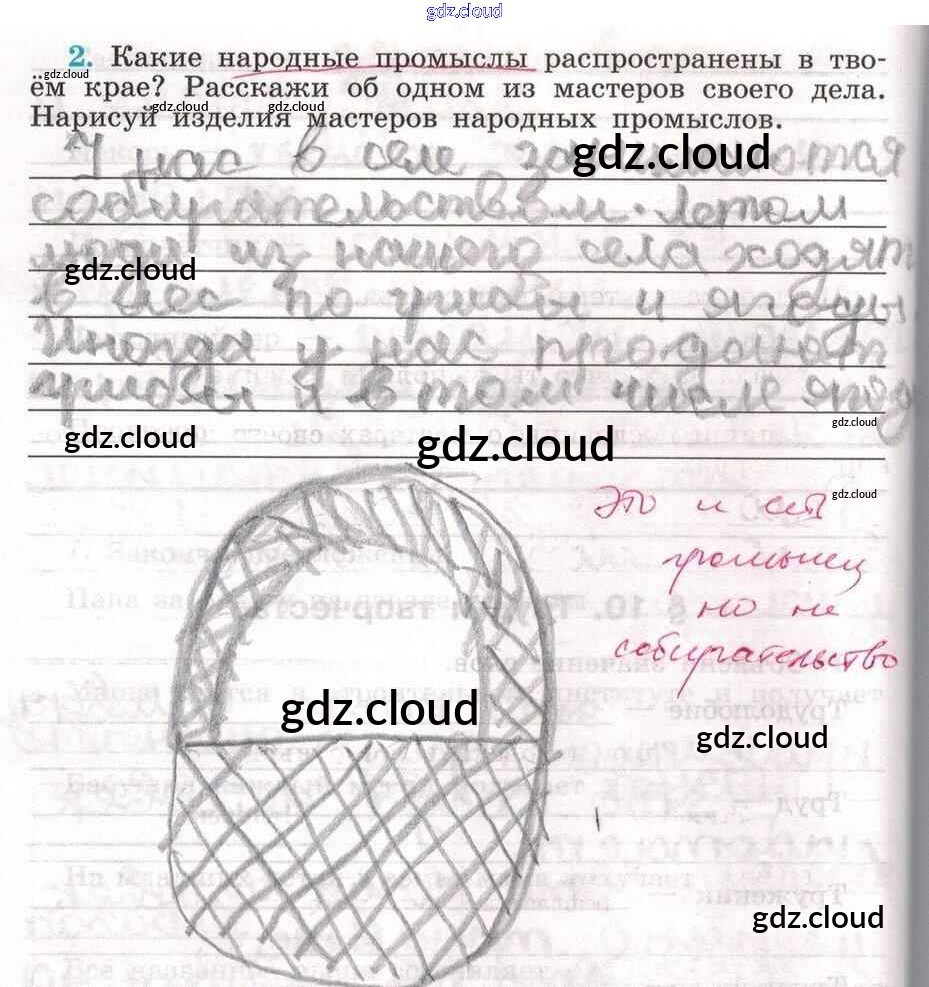 gdz.cloud
2. Какие народные промыслы распространены в тво-
ём крае? Расскажи об одном из мастеров своего дела.
Нарисуй изделия мастеров народных промыслов.
gdz.cloud
gdz.cloud
gdz.cloud
gdz.cloud
У нас в селе
собирательством. Летом
из нашего села ходят
gdz.cloud
в лес по грибы и ягоды.
Иногда у нас продают
грибы и в том числе ягод
gdz.cloud
gdz.cloud
gdz.cloud
Это и есть
gdz.cloud
промысел
но не
собирательство
§ 10. Труд и творчество
gdz.cloud
Трудолюбие —
gdz.cloud
Труд —
Труженик —
gdz.cloud